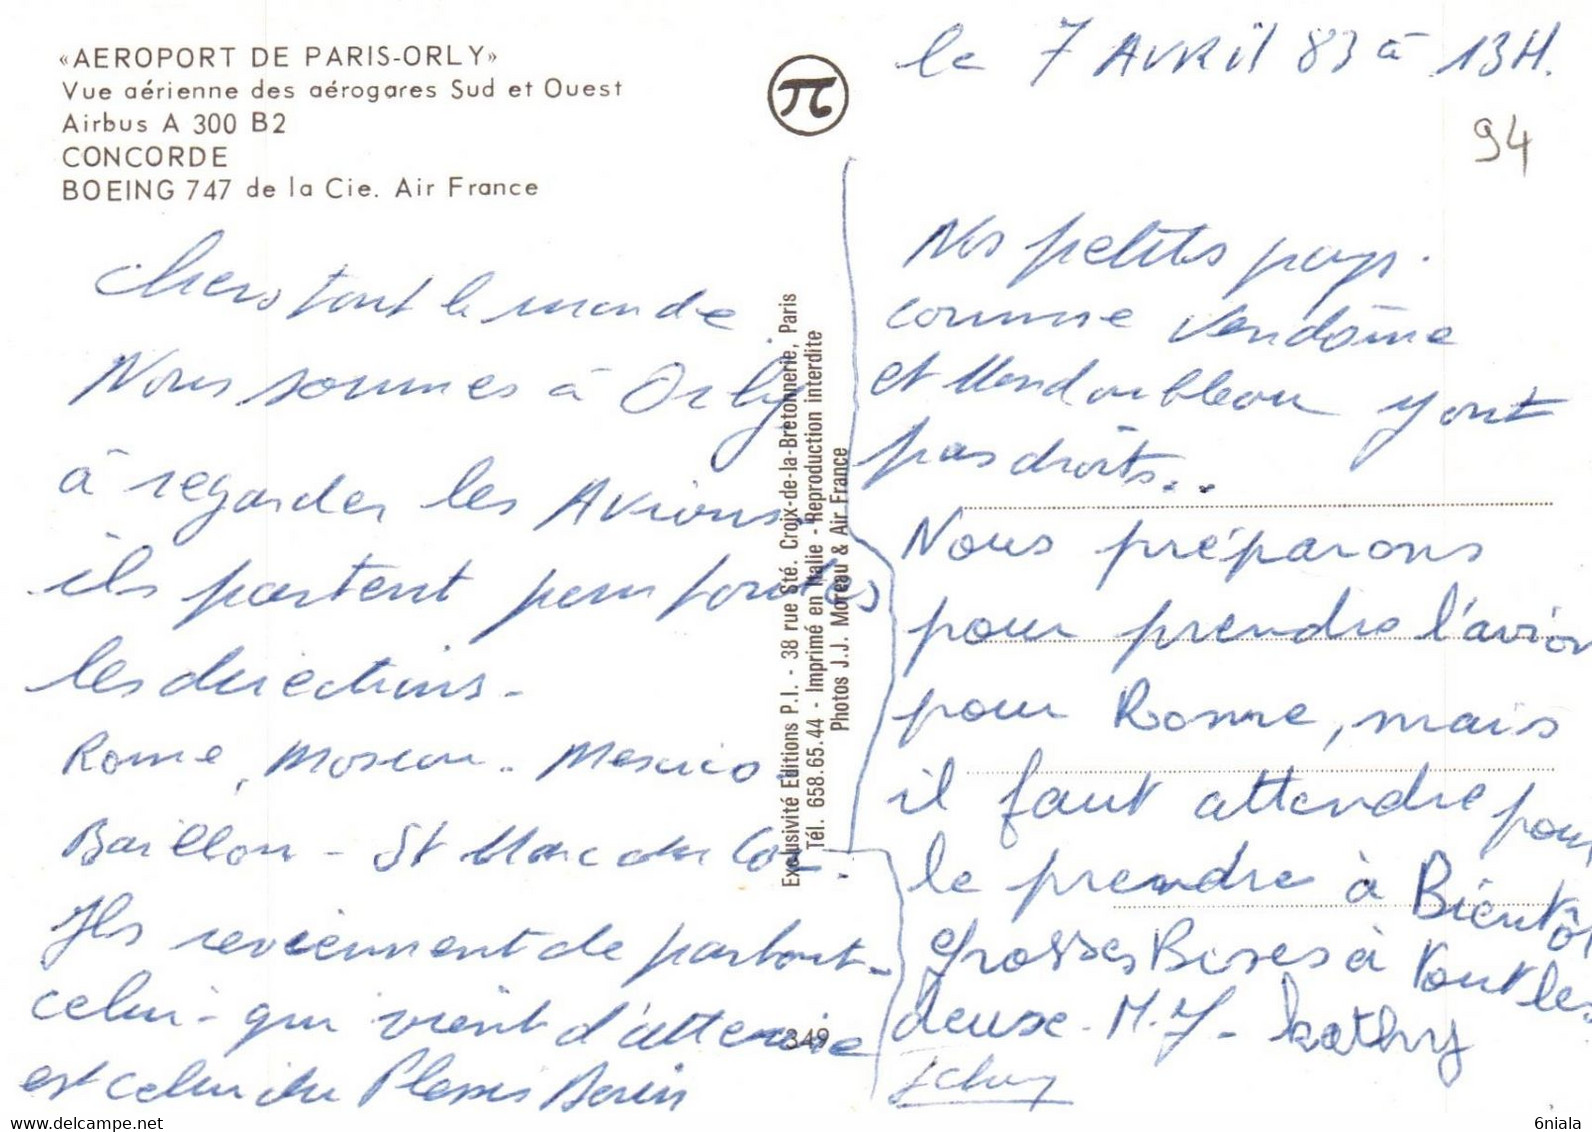 «AEROPORT DE PARIS-ORLY»
Vue aérienne des aérogares Sud et Ouest
Airbus A 300 B2
CONCORDE
BOEING 747 de la Cie. Air France
Chers tout le monde
Nous sommes à Orly
à regarder les Avions.
ils partent pour toutes
les directions -
Rome, Moscou - Mexico
Baillou - St Marc du Cor.
Ils reviennent de partout -
celui - qui vient d'atterrir
est celui du Plessis Dorin
Exclusivité Editions P.I. - 38 rue Sté. Croix-de-la-Bretonnerie, Paris
Tél. 658.65.44 - Imprimé en Italie - Reproduction interdite
Photos J.J. Moreau & Air France
349
le 7 Avril 83 à 13H.
94
Nos petits pays.
comme Vendôme
et Mondoubleau y ont
pas droits..
Nous préparons
pour prendre l'avion
pour Rome, mais
il faut attendre pour
le prendre à Bientôt
grosses Bises à tout les
deuse - M.J - kathy